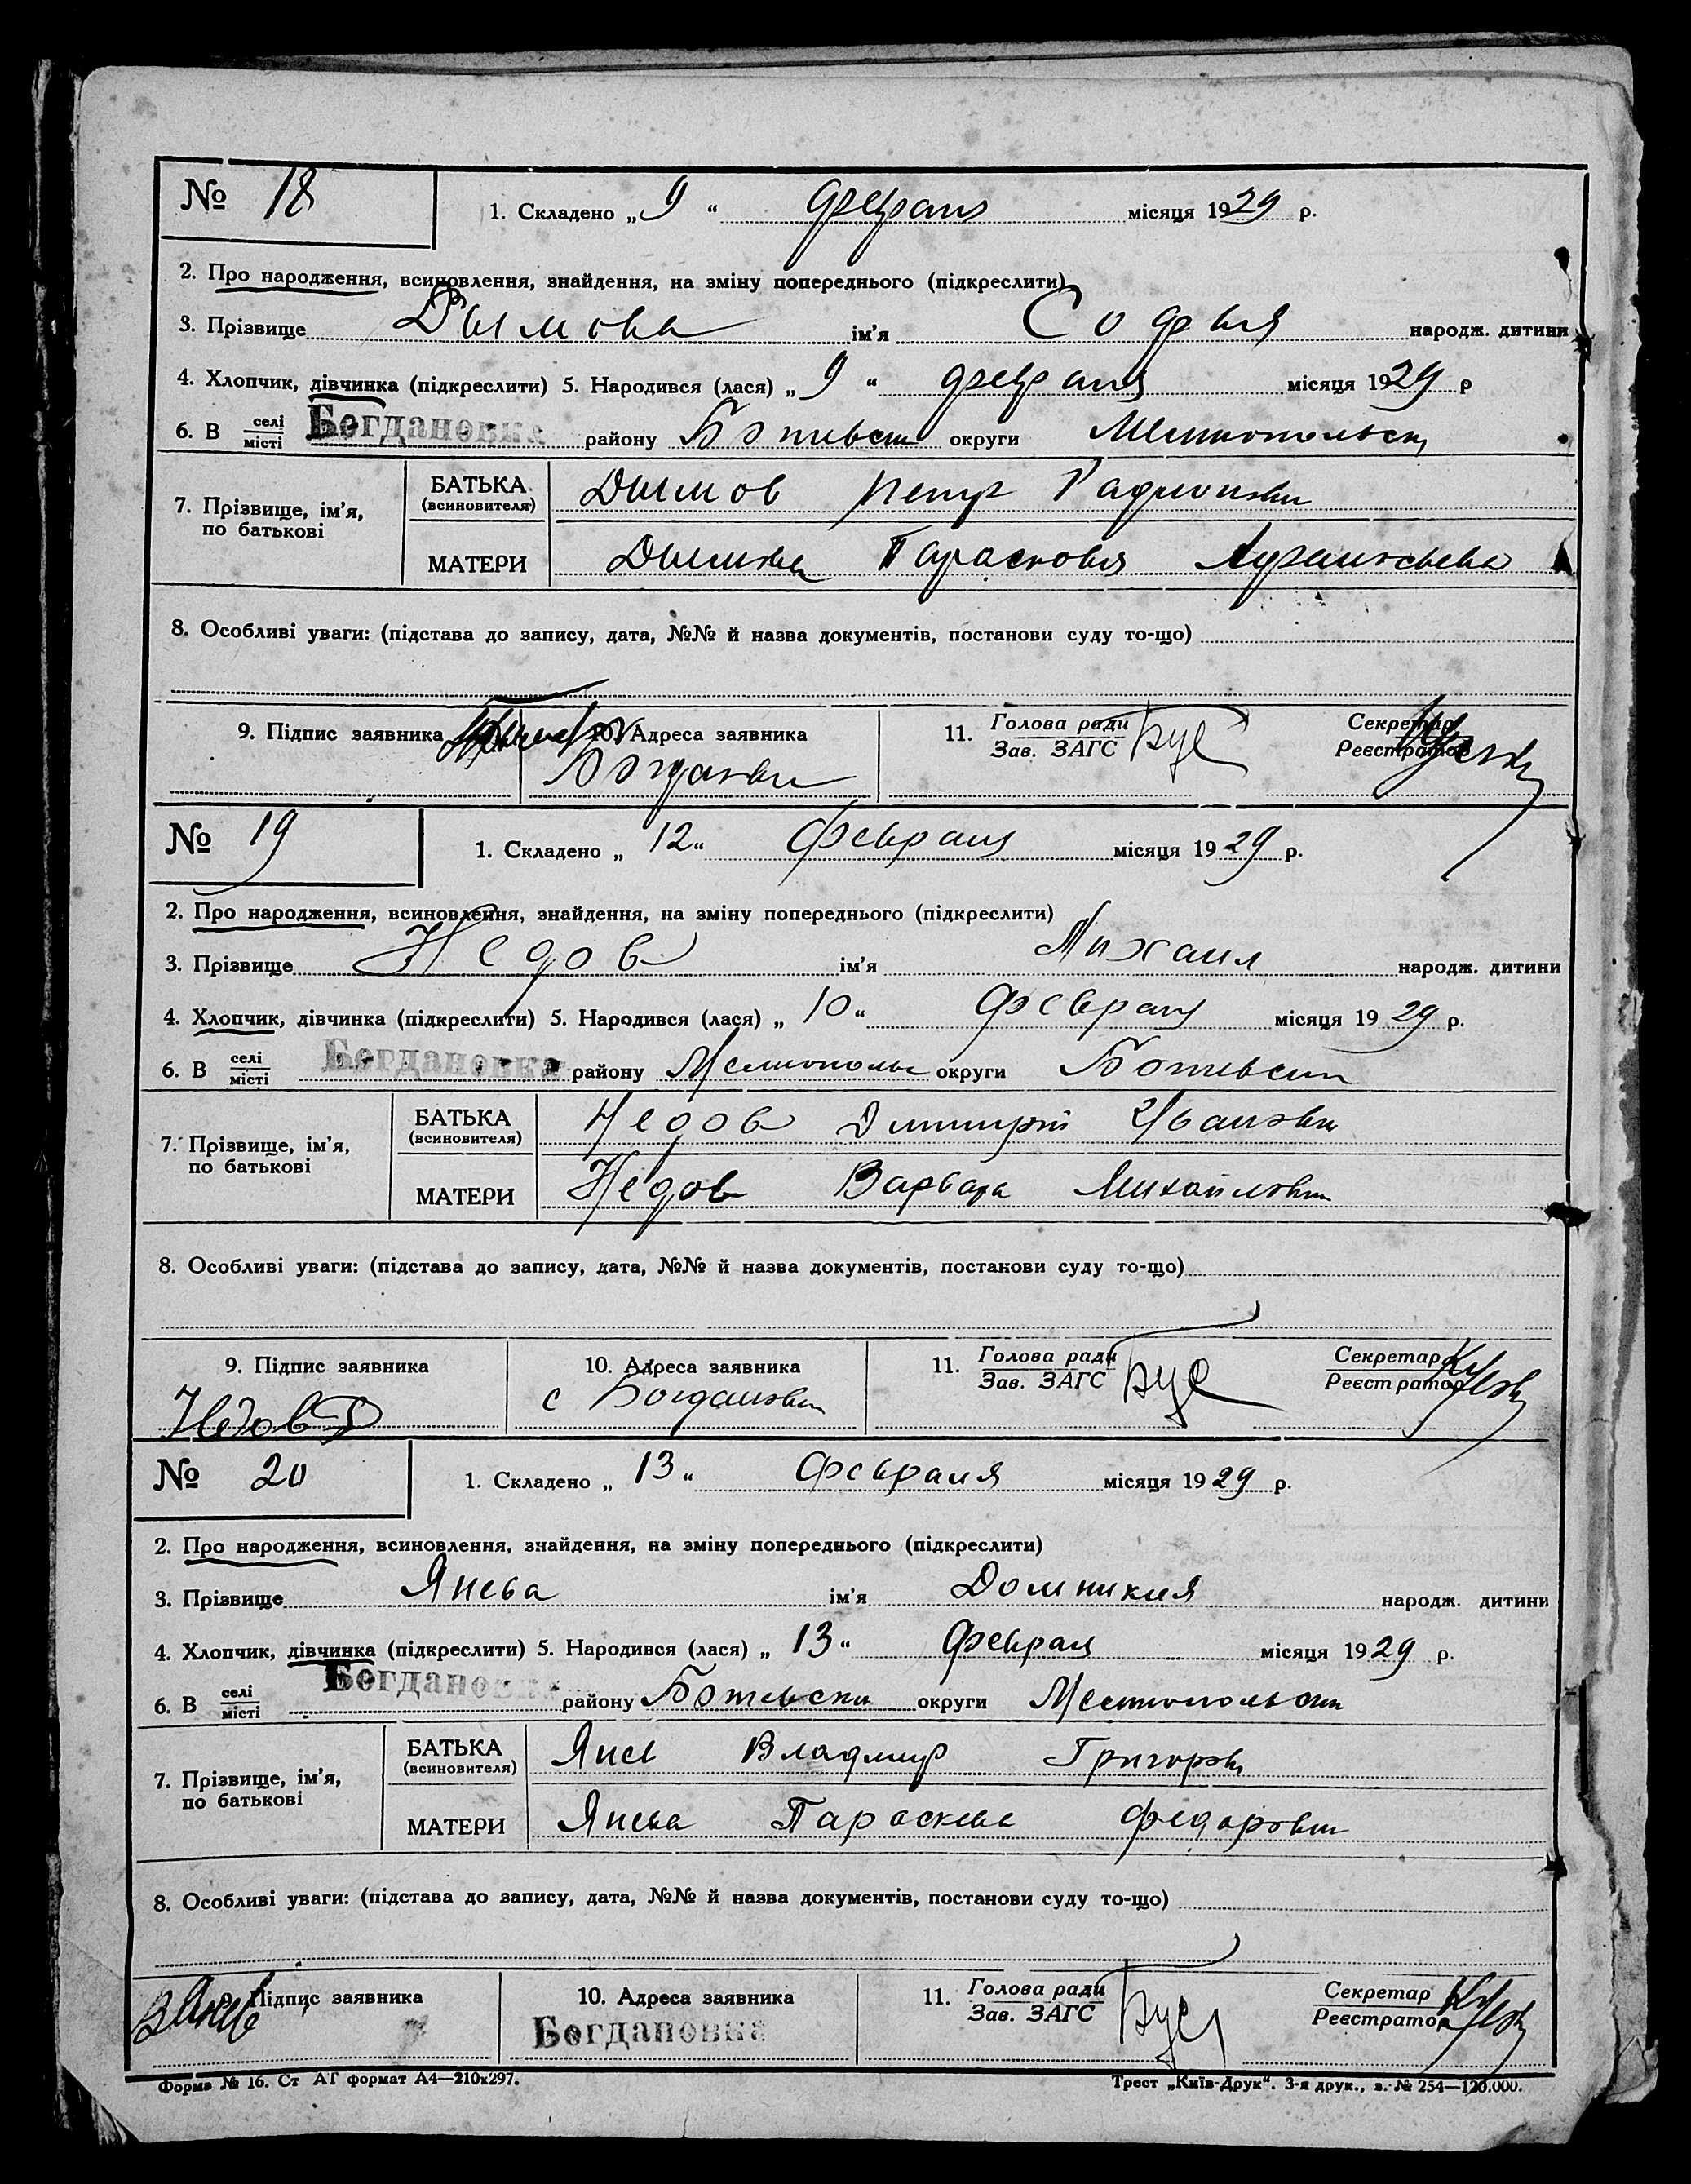 № 18 1. Складено „ 9 “ февраля місяця 1929 р.
2. Про народження, всиновлення, знайдення, на зміну попереднього (підкреслити)
3. Прізвище Дымова ім’я Софья народж. дитини
4. Хлопчик, дівчинка (підкреслити) 5. Народився (лася) „ 9 “ февраля місяця 1929 р
6. В селі місті Богдановка району Ботиевск округи Мелитопольск
7. Прізвище, ім’я, по батькові БАТЬКА (всиновителя) Дымов Петр
МАТЕРИ Дымова Парасковья
8. Особливі уваги: (підстава до запису, дата, №№ й назва документів, постанови суду то-що)
9. Підпис заявника 10. Адреса заявника 11. Голова ради Зав. ЗАГС Секретар Реєстратор
Богдановки
№ 19 1. Складено „ 12 “ февраля місяця 1929 р.
2. Про народження, всиновлення, знайдення, на зміну попереднього (підкреслити)
3. Прізвище Недов ім’я Михаил народж. дитини
4. Хлопчик, дівчинка (підкреслити) 5. Народився (лася) „ 10 “ февраля місяця 1929 р.
6. В селі місті Богдановка району Мелитополь округи Ботиевск
7. Прізвище, ім’я, по батькові БАТЬКА (всиновителя) Недов Дмитрий Иванови
МАТЕРИ Недов Варвара Михайловн
8. Особливі уваги: (підстава до запису, дата, №№ й назва документів, постанови суду то-що)
9. Підпис заявника 10. Адреса заявника 11. Голова ради Зав. ЗАГС Секретар Реєстратор
Недов с Богдановки
№ 20 1. Складено „ 13 “ февраля місяця 1929 р.
2. Про народження, всиновлення, знайдення, на зміну попереднього (підкреслити)
3. Прізвище Янева ім’я Домникия народж. дитини
4. Хлопчик, дівчинка (підкреслити) 5. Народився (лася) „ 13 “ февраля місяця 1929 р.
6. В селі місті Богдановка району Ботиевски округи Мелитопольски
7. Прізвище, ім’я, по батькові БАТЬКА (всиновителя) Янев Владимир Григорэв
МАТЕРИ Янева Параскева Федоровн
8. Особливі уваги: (підстава до запису, дата, №№ й назва документів, постанови суду то-що)
9. Підпис заявника 10. Адреса заявника 11. Голова ради Зав. ЗАГС Секретар Реєстратор
В Янев Богдановка
Форма № 16. Ст АГ формат А4—210х297. Трест „Київ-Друк“. 3-я друк., з. № 254—120.000.